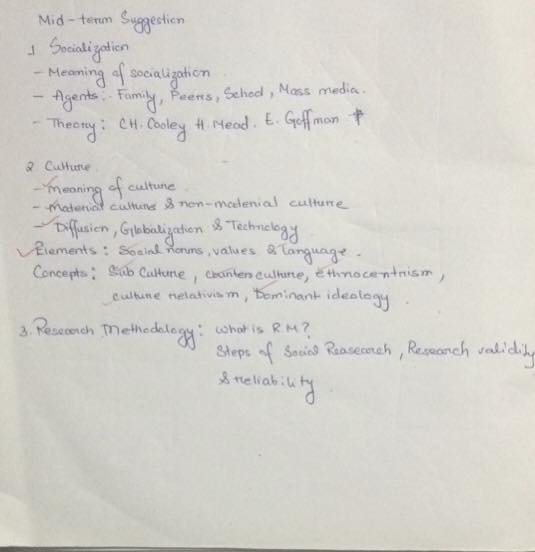 Mid-term Suggestion
1 Socialization
- Meaning of socialization.
- Agents:- Family, Peers, School, Mass media.
- Theory: CH. Cooley H. Mead. E. Goffman
2 Culture
- Meaning of culture
- Material culture & non-material culture
- Diffusion, Globalization & Technology
Elements: Social norms, values & language.
Concepts: Sub Culture, counter culture, ethnocentrism,
culture relativism, Dominant ideology.
3. Research Methodology: What is R.M?
Steps of Social Reasearch, Research validity
& reliability